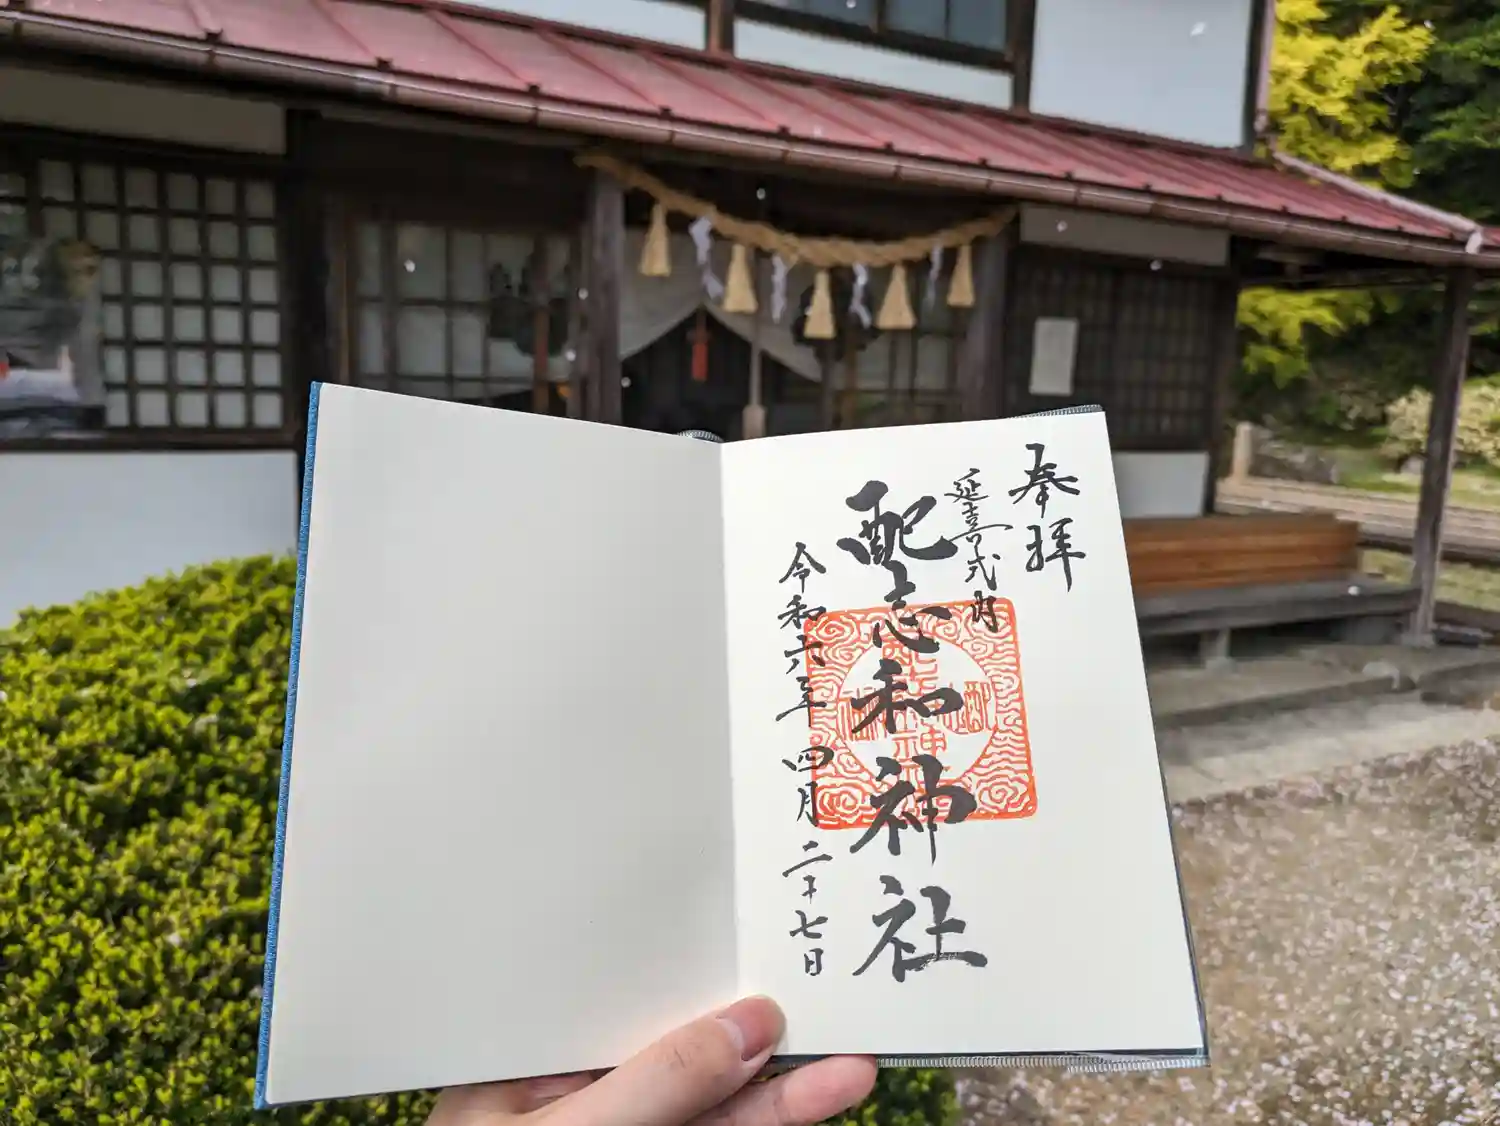 奉拝
延喜式内
配志和神社
令和六年四月二十七日